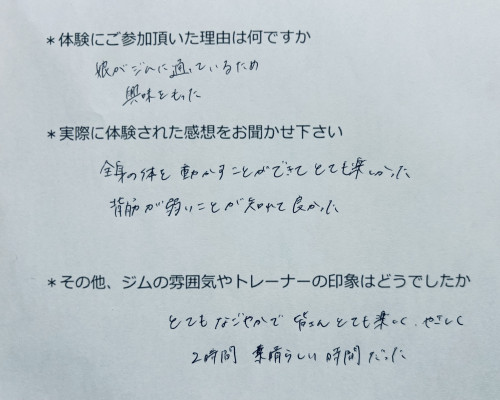 ＊体験にご参加頂いた理由は何ですか
娘がジムに通っているため
興味をもった
＊実際に体験された感想をお聞かせ下さい
全身の体を動かすことができてとても楽しかった
背筋が弱いことが知れて良かった
＊その他、ジムの雰囲気やトレーナーの印象はどうでしたか
とてもなごやかで皆さんとても楽しく、やさしく
2時間 素晴らしい時間だった